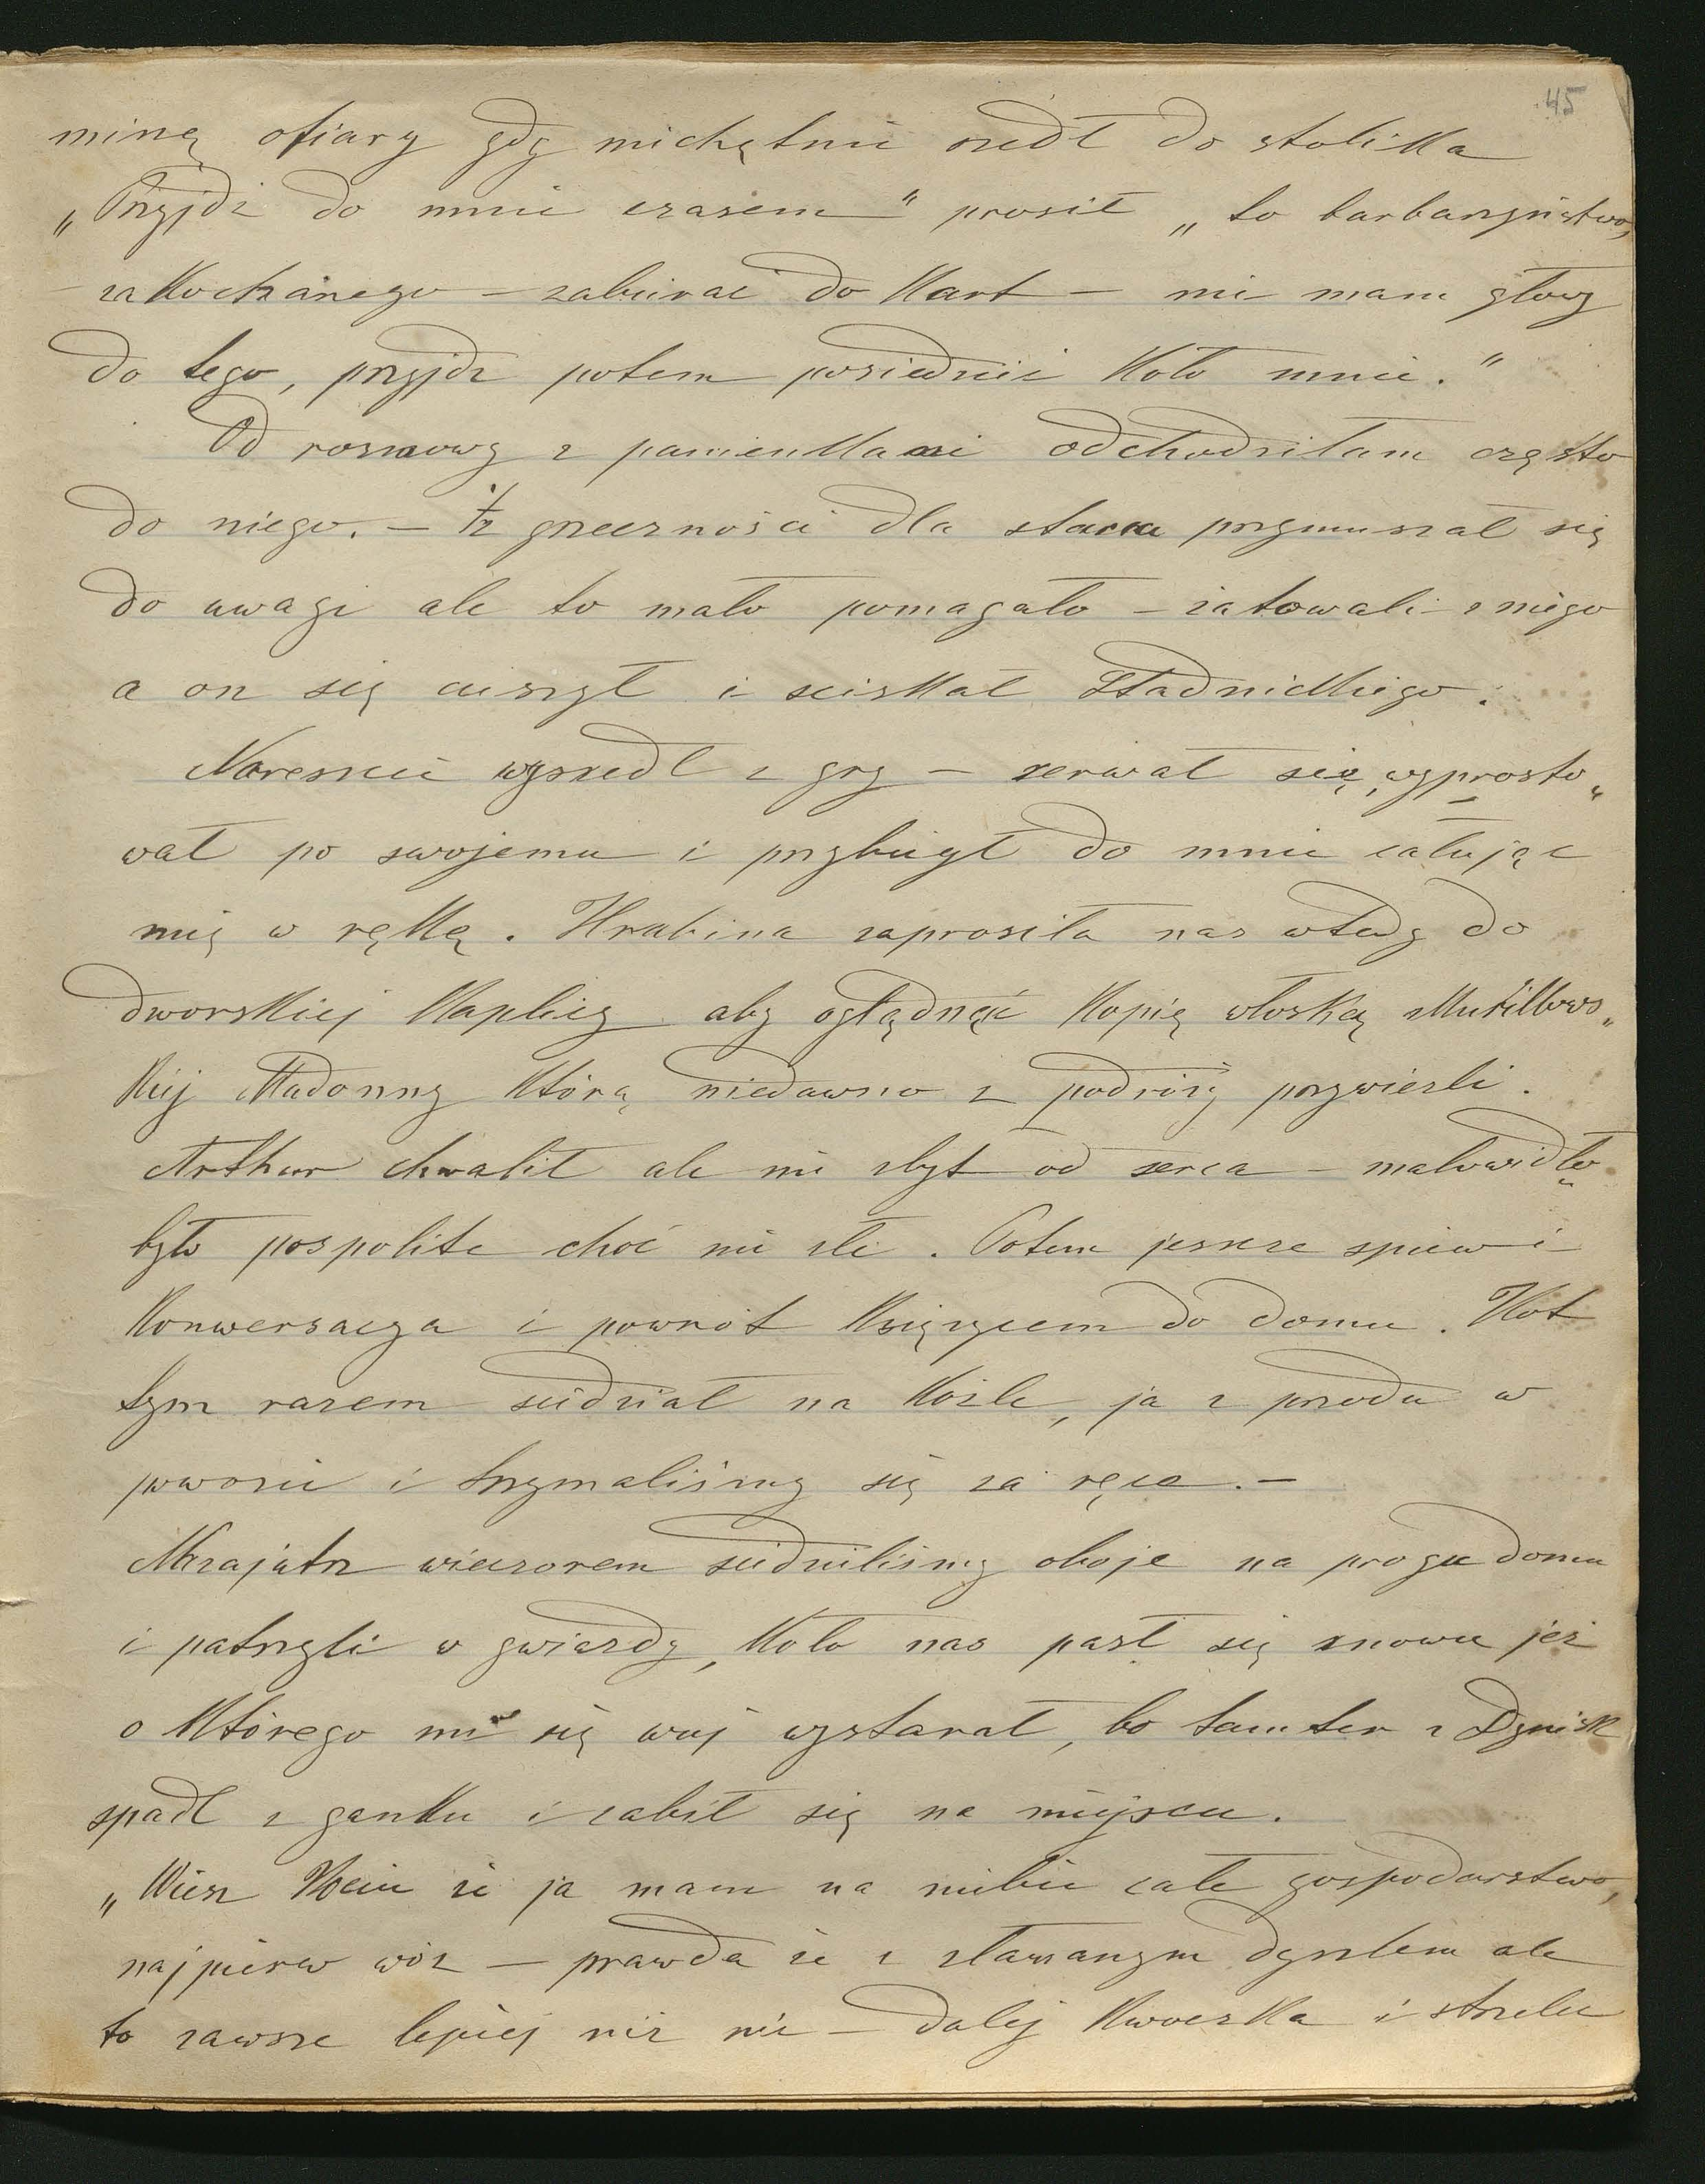 45
miną ofiary gdy niechętnie szedł do stolika
„Przyjdź do mnie czasem" prosił „to barbarzyństwo,
zakochanego – zabierać do kart – nie mam głowy
do tego, przyjdź potem posiedzieć koło mnie."
Od rozmowy z panienkami odchodziłam często
do niego. – Z grzeczności dla starca przymuszał się
do uwagi ale to mało pomagało – żatowali z niego
a on się cieszył i sciskał Stadnickiego.
Nareszcie wyszedł z gry – zerwał się, wyprosto„
wał po swojemu i przybiegł do mnie całując
mię w rękę. Hrabina zaprosiła nas wtedy do
dworskiej kaplicy aby oglądnąć kopię włoską Murillows„
kiej Madonny którą niedawno z podróży przywieźli.
Arthur chwalił ale nie zbyt od serca – malowidło
było pospolite choć nie złe. Potem jeszcze spiew i
konwersacya i powrót księżycem do domu. Kot
tym razem siedział na koźle, ja z przodu w
powozie i trzymaliśmy się za ręce. –
Nazajutrz wieczorem siedzieliśmy oboje na progu domu
i patrzyli w gwiazdy, koło nas pasł się znowu jeż
o którego mi się wuj wystarał, bo tamten z Dynisk
spadł z ganku i zabił się na miejscu.
„Wiesz Kociu że ja mam na niebie całe gospodarstwo,
najpierw wóz – prawda że z złamanym dyszlem ale
to zawsze lepiej niż nic – dalej kwoczka i strzelec